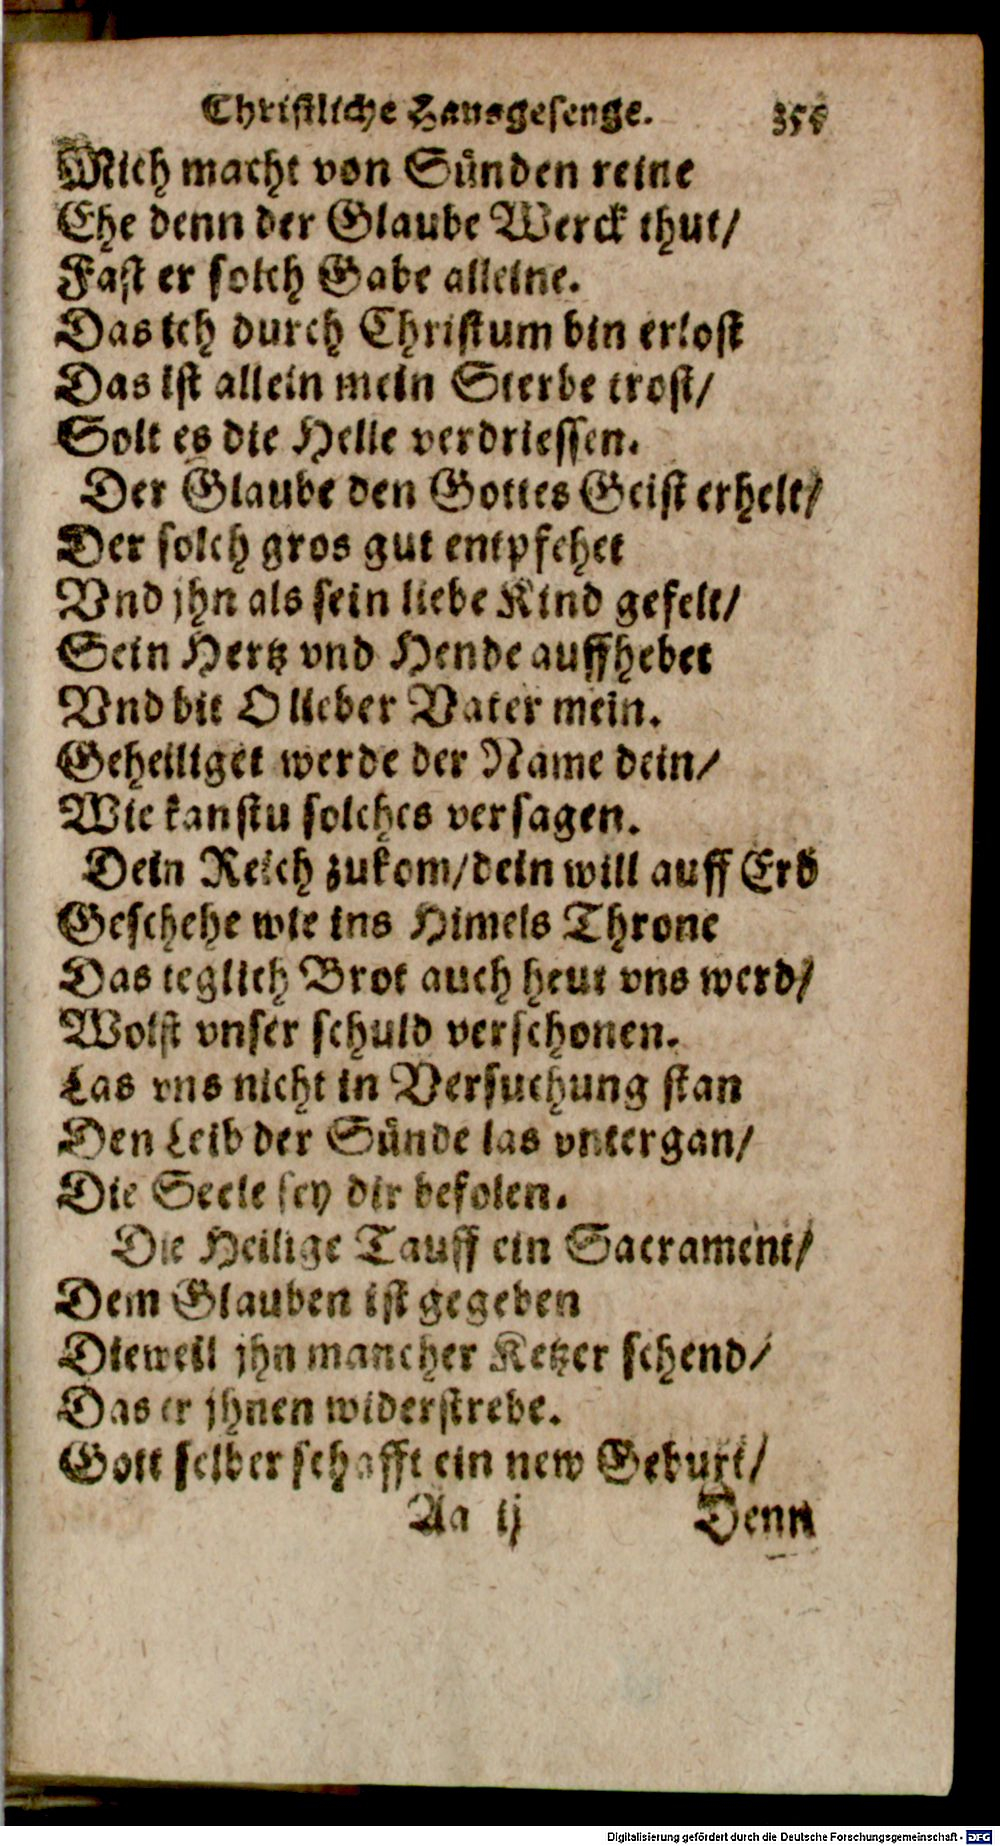 Christliche Hausgesenge. 355
Mich macht von Sünden reine
Ehe denn der Glaube Werck thut/
Fast er solch Gabe alleine.
Das ich durch Christum bin erlost
Das ist allein mein Sterbe trost/
Solt es die Helle verdriessen.
Der Glaube den Gottes Geist erhelt/
Der solch gros gut entpfehet
Vnd jhn als sein liebe Kind gefelt/
Sein Hertz vnd Hende auffhebet
Vnd bit O lieber Vater mein.
Geheiliget werde der Name dein/
Wie kanstu solches versagen.
Dein Reich zukom/dein will auff Erd
Geschehe wie ins Himels Throne
Das teglich Brot auch heut vns werd/
Wolst vnser schuld verschonen.
Las vns nicht in Versuchung stan
Den Leib der Sünde las vntergan/
Die Seele sey dir befolen.
Die Heilige Tauff ein Sacrament/
Dem Glauben ist gegeben
Dieweil jhn mancher Ketzer schend/
Das er jhnen widerstrebe.
Gott selber schafft ein new Geburt/
Aa ij Denn
Digitalisierung gefördert durch die Deutsche Forschungsgemeinschaft - DFG